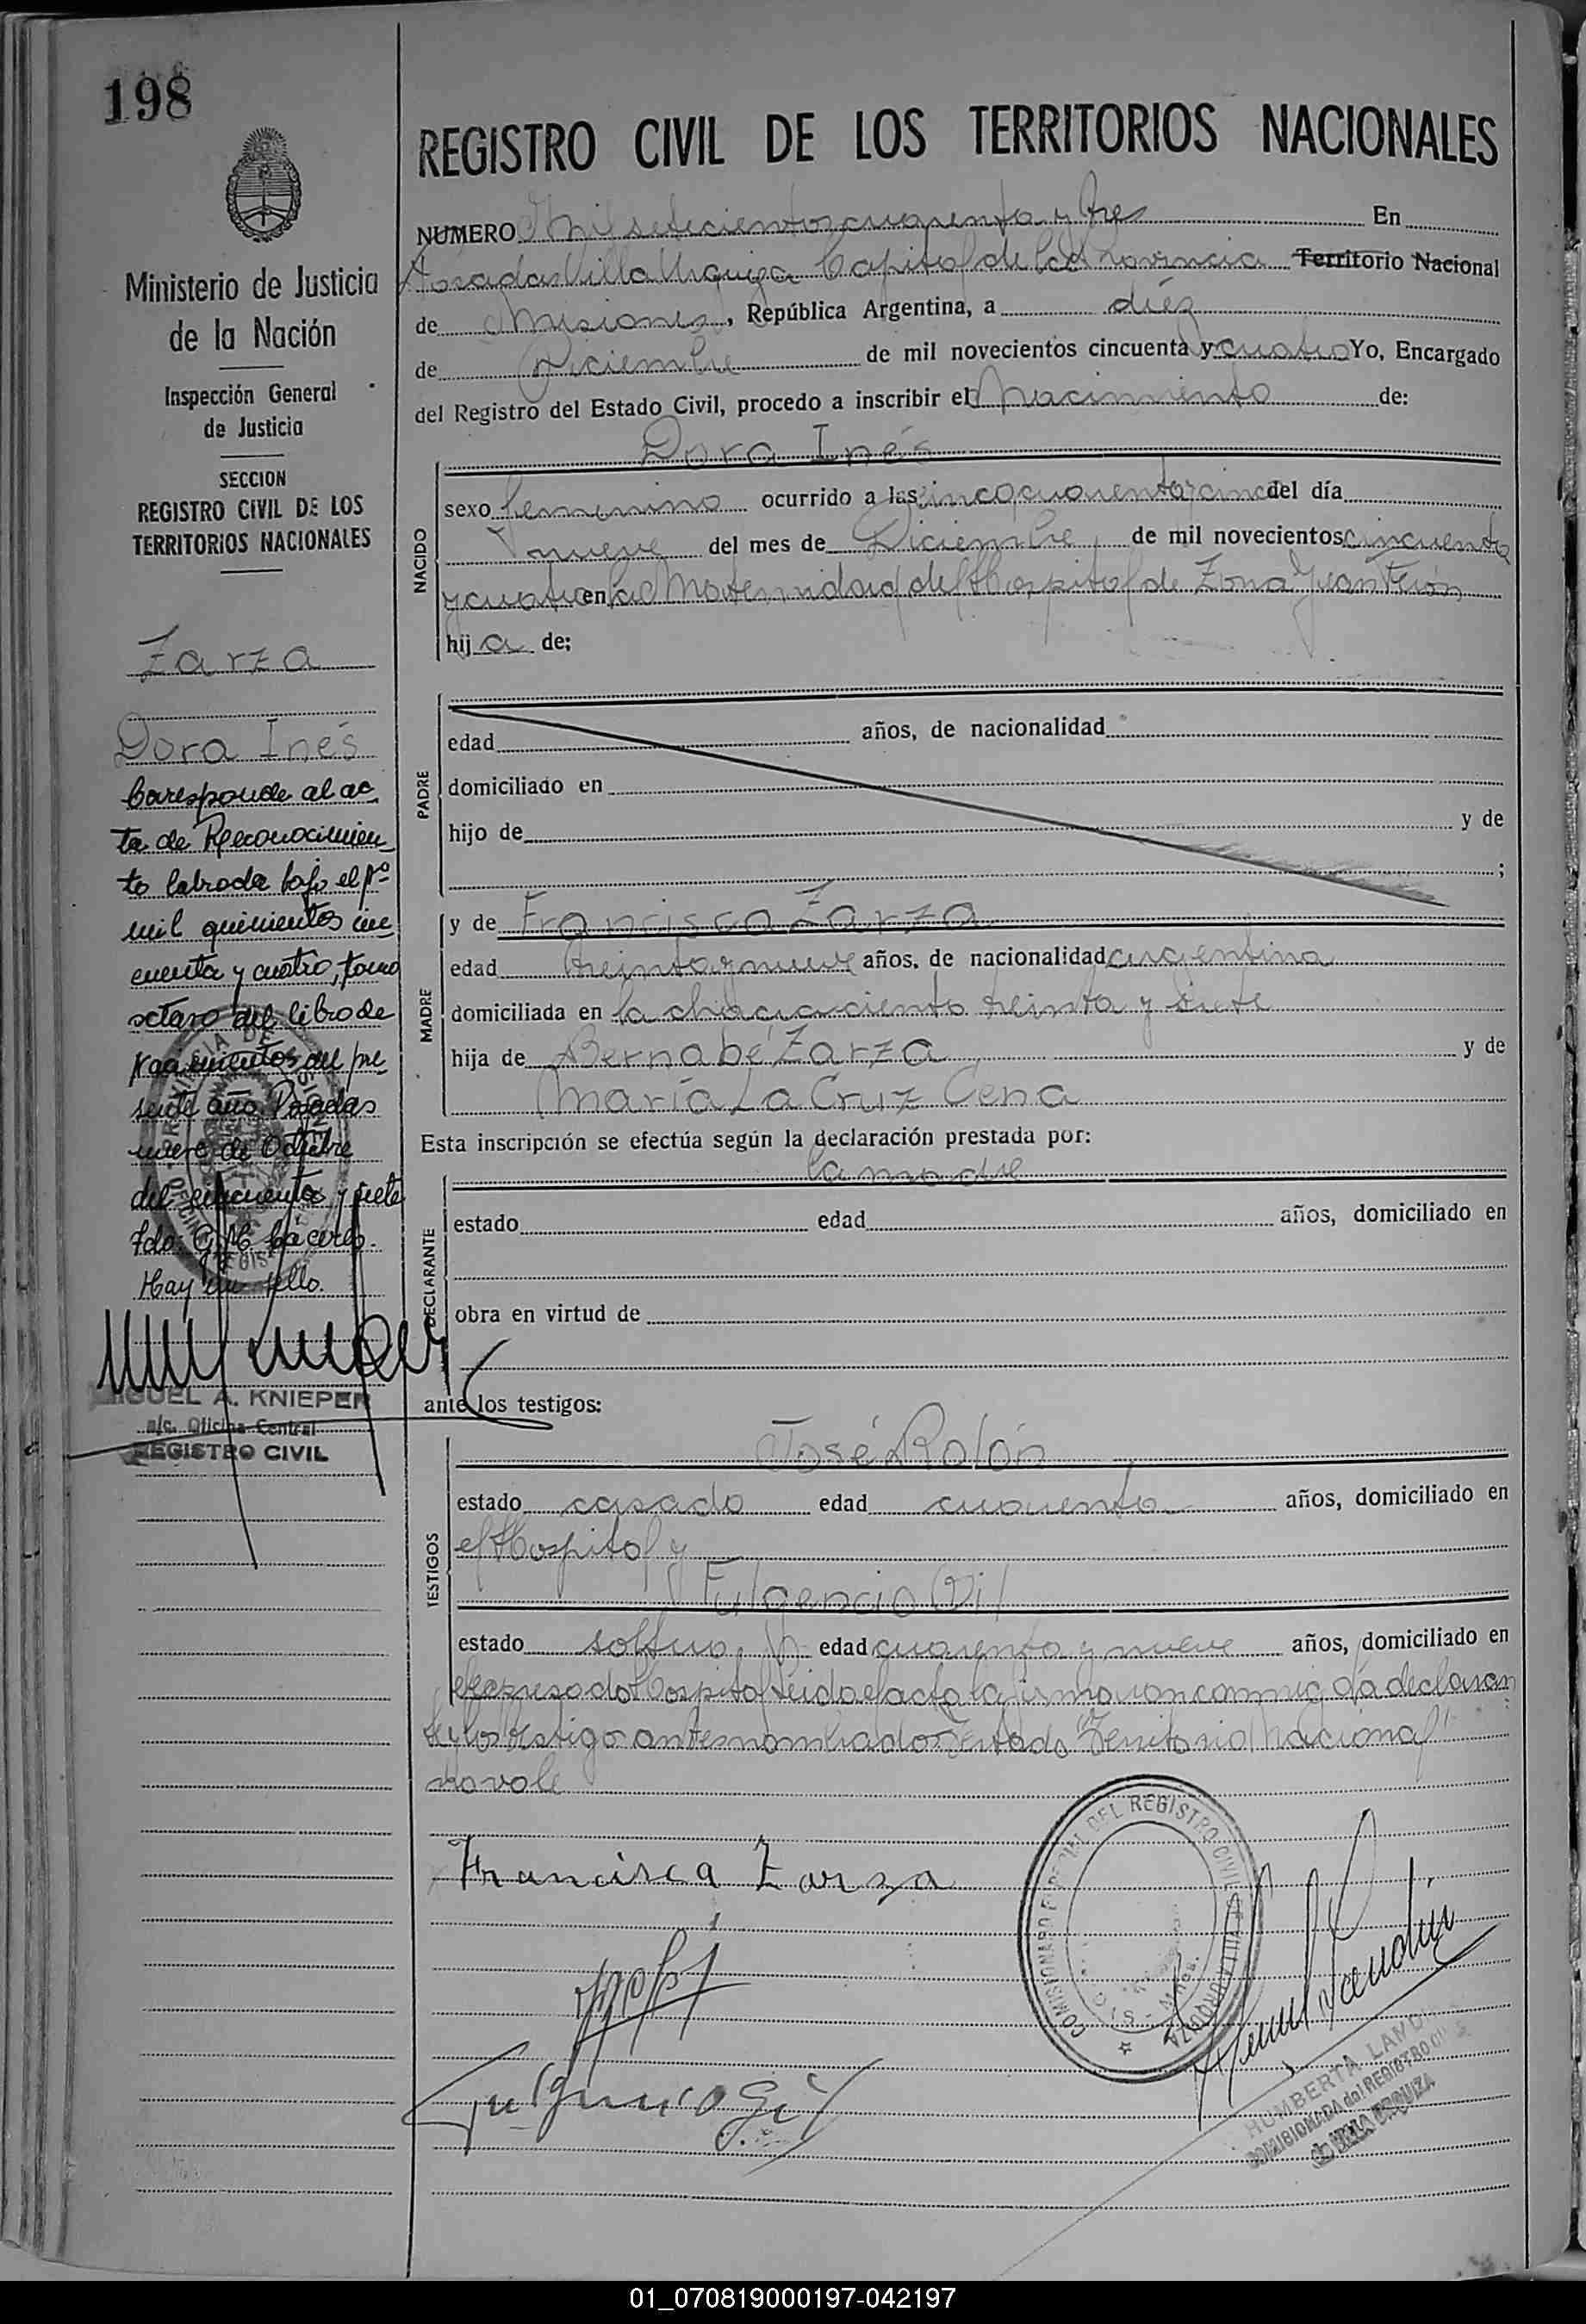 198
Ministerio de Justicia
de la Nación
Inspección General
de Justicia
SECCION
REGISTRO CIVIL DE LOS
TERRITORIOS NACIONALES
Zarza
Dora Inés
Corresponde al ac
ta de Reconocimien
to labrada bajo el Nº
mil quinientos cin
cuenta y cuatro, tomo
octavo del libro de
Nacimientos del pre
sente año Posadas
nueve de Octubre
del cincuenta y siete
Fdo. G. M. Cáceres.
Hay un sello.
MIGUEL A. KNIEPER
a/c. Oficina Central
REGISTRO CIVIL
REGISTRO CIVIL DE LOS TERRITORIOS NACIONALES
NUMERO Mil setecientos cuarenta y tres En
Posadas Villa Urquiza Capital de la Provincia Territorio Nacional
de Misiones, República Argentina, a diéz
de Diciembre de mil novecientos cincuenta y cuatro Yo, Encargado
del Registro del Estado Civil, procedo a inscribir el Nacimiento de:
Dora Inés
NACIDO
sexo femenino ocurrido a las cinco cuarenta y cinco del día
nueve del mes de Diciembre de mil novecientos cincuenta
y cuatro en la Maternidad del Hospital de Zona Juan Perón
hij a de:
PADRE
edad años, de nacionalidad
domiciliado en
hijo de y de
;
MADRE
y de Francisca Zarza
edad treinta y nueve años, de nacionalidad argentina
domiciliada en la chacra ciento treinta y siete
hija de Bernabé Zarza y de
María La Cruz Cena
Esta inscripción se efectúa según la declaración prestada por:
la madre
DECLARANTE
estado edad años, domiciliado en
obra en virtud de
ante los testigos:
José Rolón
TESTIGOS
estado casado edad cuarenta años, domiciliado en
el Hospital y
Fulgencio Gil
estado soltero edad cuarenta y nueve años, domiciliado en
el expresado Hospital Leida el acta la firmaron conmigo la declaran
te y los testigo antes nombrados Testado "Territorio Nacional"
no vale
Francisca Zarza
Fulgencio Gil
COMISIONADO ESPECIAL DEL REGISTRO CIVIL VILLA URQUIZA
HUMBERTA LAND
COMISIONADA del REGISTRO CIVIL
de VILLA URQUIZA
01_070819000197-042197